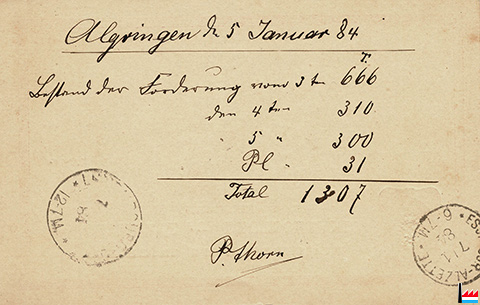 Algringen de 5 Januar 84
T.
Bestand der Forderung vom 3 ten 666
den 4 ten 310
" 5 " 300
Pl . 31
Total 1307
P. thorn
12-7M
7
84
6-7M
7 1
84
ESCH-SUR-ALZETTE